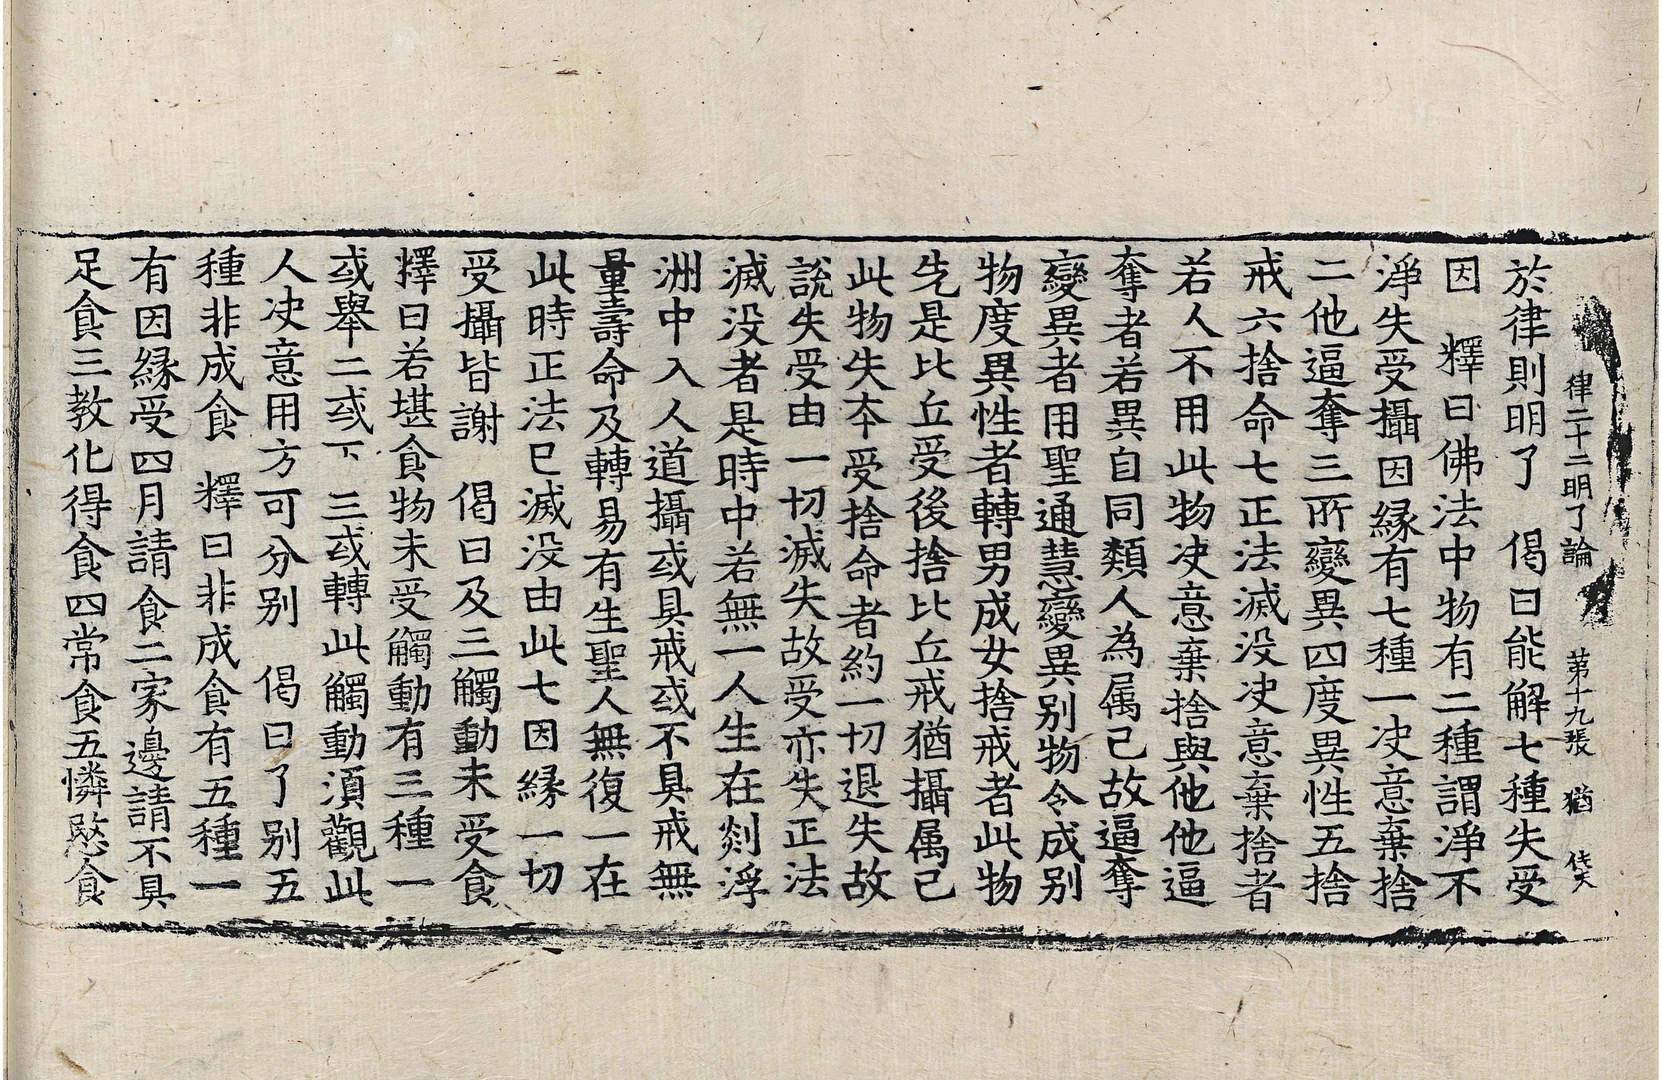 律二十二明了論　第十九張　猶　侁
於律則明了　偈曰能解七種失受
因　釋曰佛法中物有二種謂淨不
淨失受攝因緣有七種一决意棄捨
二他逼奪三所變異四度異性五捨
戒六捨命七正法滅没决意棄捨者
若人不用此物决意棄捨與他他逼
奪者若異自同類人為属己故逼奪
變異者用聖通慧變異別物令成別
物度異性者轉男成女捨戒者此物
先是比丘受後捨比丘戒猶攝属己
此物失本受捨命者約一切退失故
說失受由一切滅失故受亦失正法
滅没者是時中若無一人生在剡浮
洲中入人道攝或具戒或不具戒無
量壽命及轉易有生聖人無復一在
此時正法已滅没由此七因緣一切
受攝皆謝　偈曰及三觸動未受食
釋曰若堪食物未受觸動有三種一
或舉二或下　三或轉此觸動須觀此
人决意用方可分別　偈曰了別五
種非成食　釋曰非成食有五種一
有因緣受四月請食二家邊請不具
足食三教化得食四常食五憐愍食